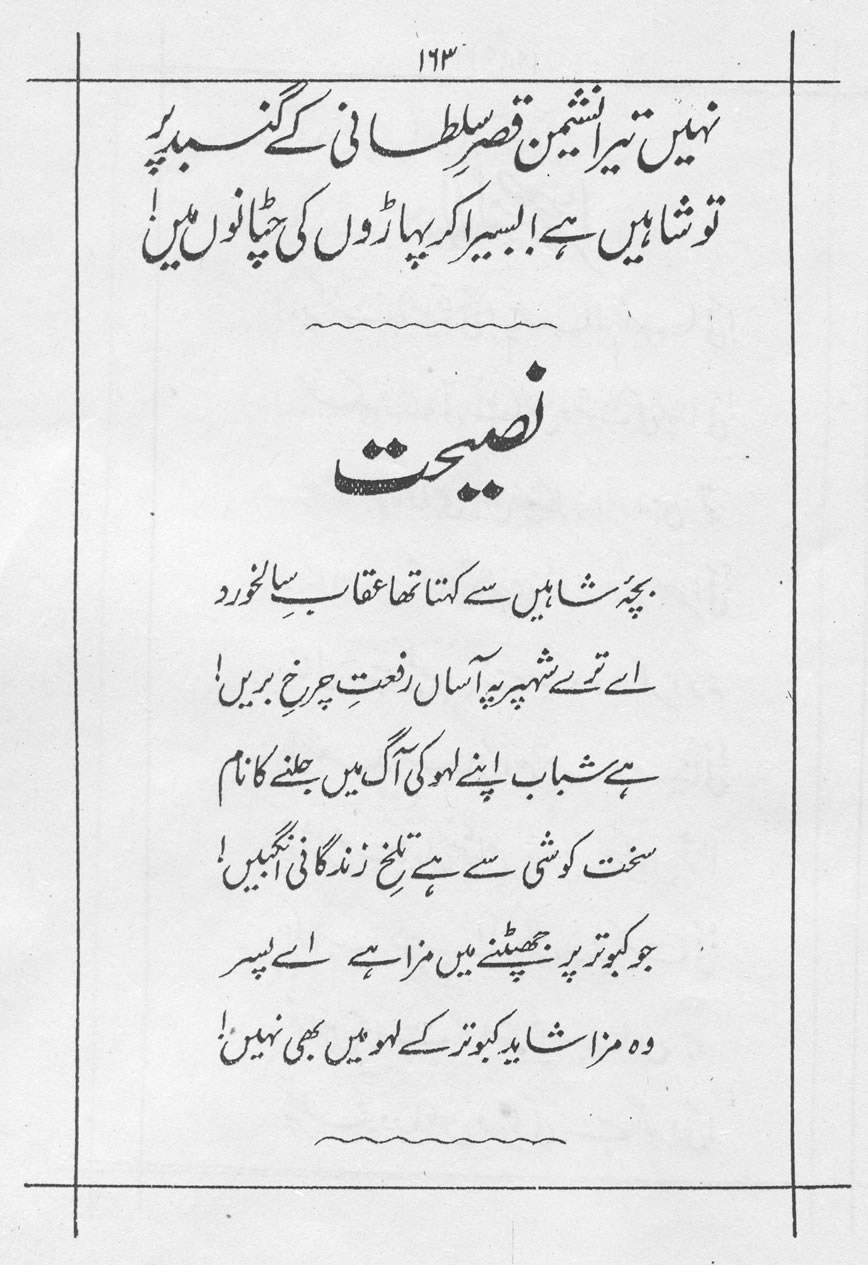 ۱۶۳
نہیں تیرا نشیمن قصرِ سلطانی کے گنبد پر
تو شاہیں ہے! بسیرا کر پہاڑوں کی چٹانوں میں!
نصیحت
بچۂ شاہیں سے کہتا تھا عقابِ سالخورد
اے ترے شہپر پہ آساں رفعتِ چرخِ بریں!
ہے شباب اپنے لہو کی آگ میں جلنے کا نام
سخت کوشی سے ہے تلخِ زندگانی انگبیں!
جو کبوتر پر جھپٹنے میں مزا ہے اے پسر
وہ مزا شاید کبوتر کے لہو میں بھی نہیں!